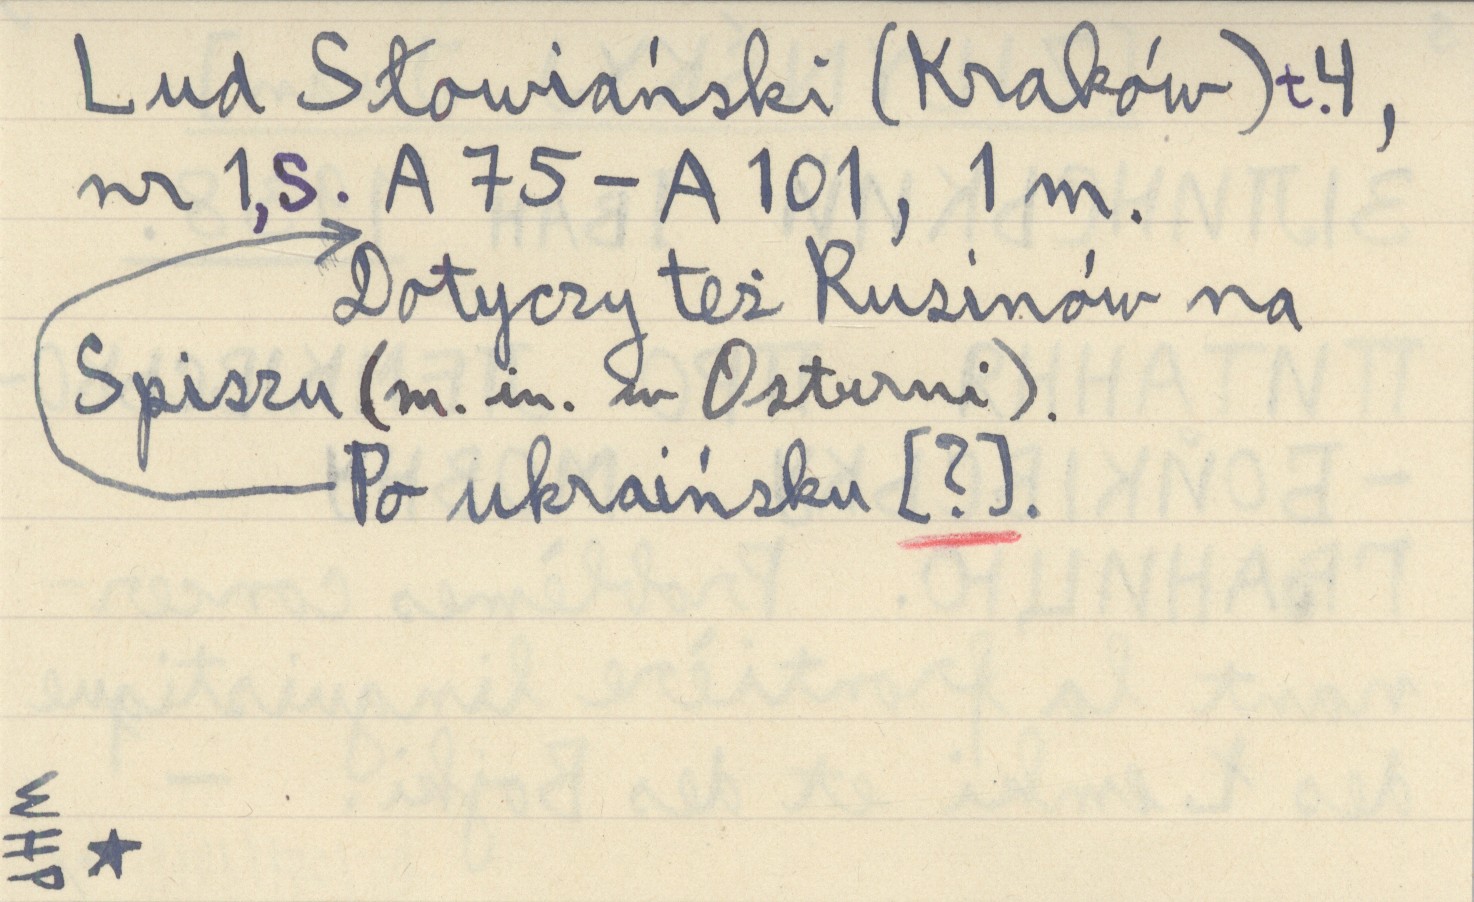 Lud Słowiański (Kraków) t.4,
nr 1, s. A 75 – A 101, 1 m.
Dotyczy też Rusinów na
Spiszu (m. in. w Osturni).
Po ukraińsku [?].
WHP